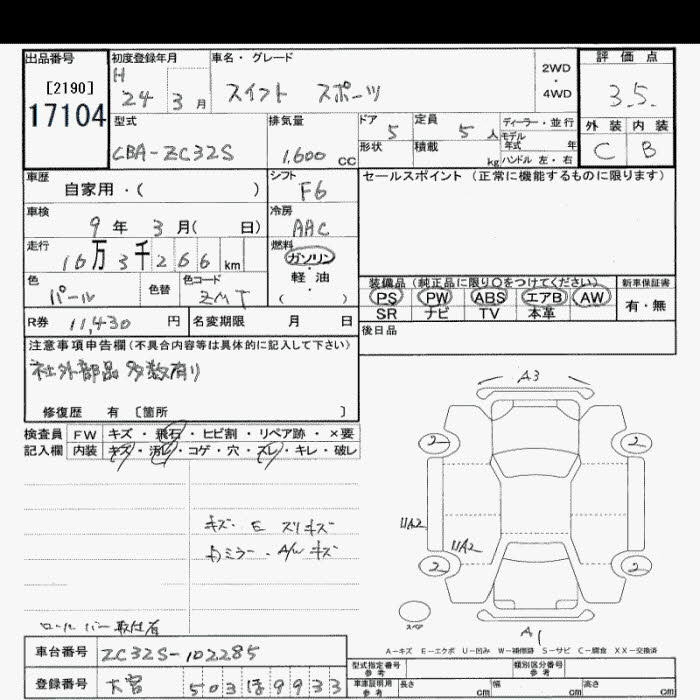 出品番号
[2190]
17104
初度登録年月
H 24 3 月
車名・グレード
スイフト スポーツ
2WD
・
4WD
評価点
3.5.
外装 内装
C B
型式
CBA-ZC32S
排気量
1,600 cc
ドア 5
定員 5 人
ディーラー・並行
モデル年式 年
形状
積載 kg
ハンドル 左・右
車歴
自家用・( )
シフト
F6
車検
9 年 3 月( 日)
冷房
AAC
走行
16万3千266 km
燃料
ガソリン
・
軽油
( )
色
パール
色替
色コード
ZMT
R券 11,430 円
名変期限 月 日
セールスポイント (正常に機能するものに限ります)
装備品 (純正品に限り〇をつけてください)
PS PW ABS エアB AW
SR ナビ TV 本革
新車保証書
有・無
後日品
注意事項申告欄(不具合内容等は具体的に記入して下さい)
社外部品多数有り
修復歴 有 [箇所 ]
検査員 FW キズ・飛石・ヒビ割・リペア跡・×要
記入欄 内装 キズ・汚レ・コゲ・穴・スレ・キレ・破レ
キズ・E スリキズ
ミラー・A/W キズ
ロールバー取付有
A3
2 2
UA2
UA2
2 2
スペア
A1
A-キズ E-エクボ U-凹み W-補修跡 S-サビ C-腐食 XX-交換済
車台番号 ZC32S-102285
登録番号 大宮 503 ほ 9933
型式指定番号
参考
類別区分番号
参考
車庫証明用
参考
長さ cm 幅 cm 高さ cm